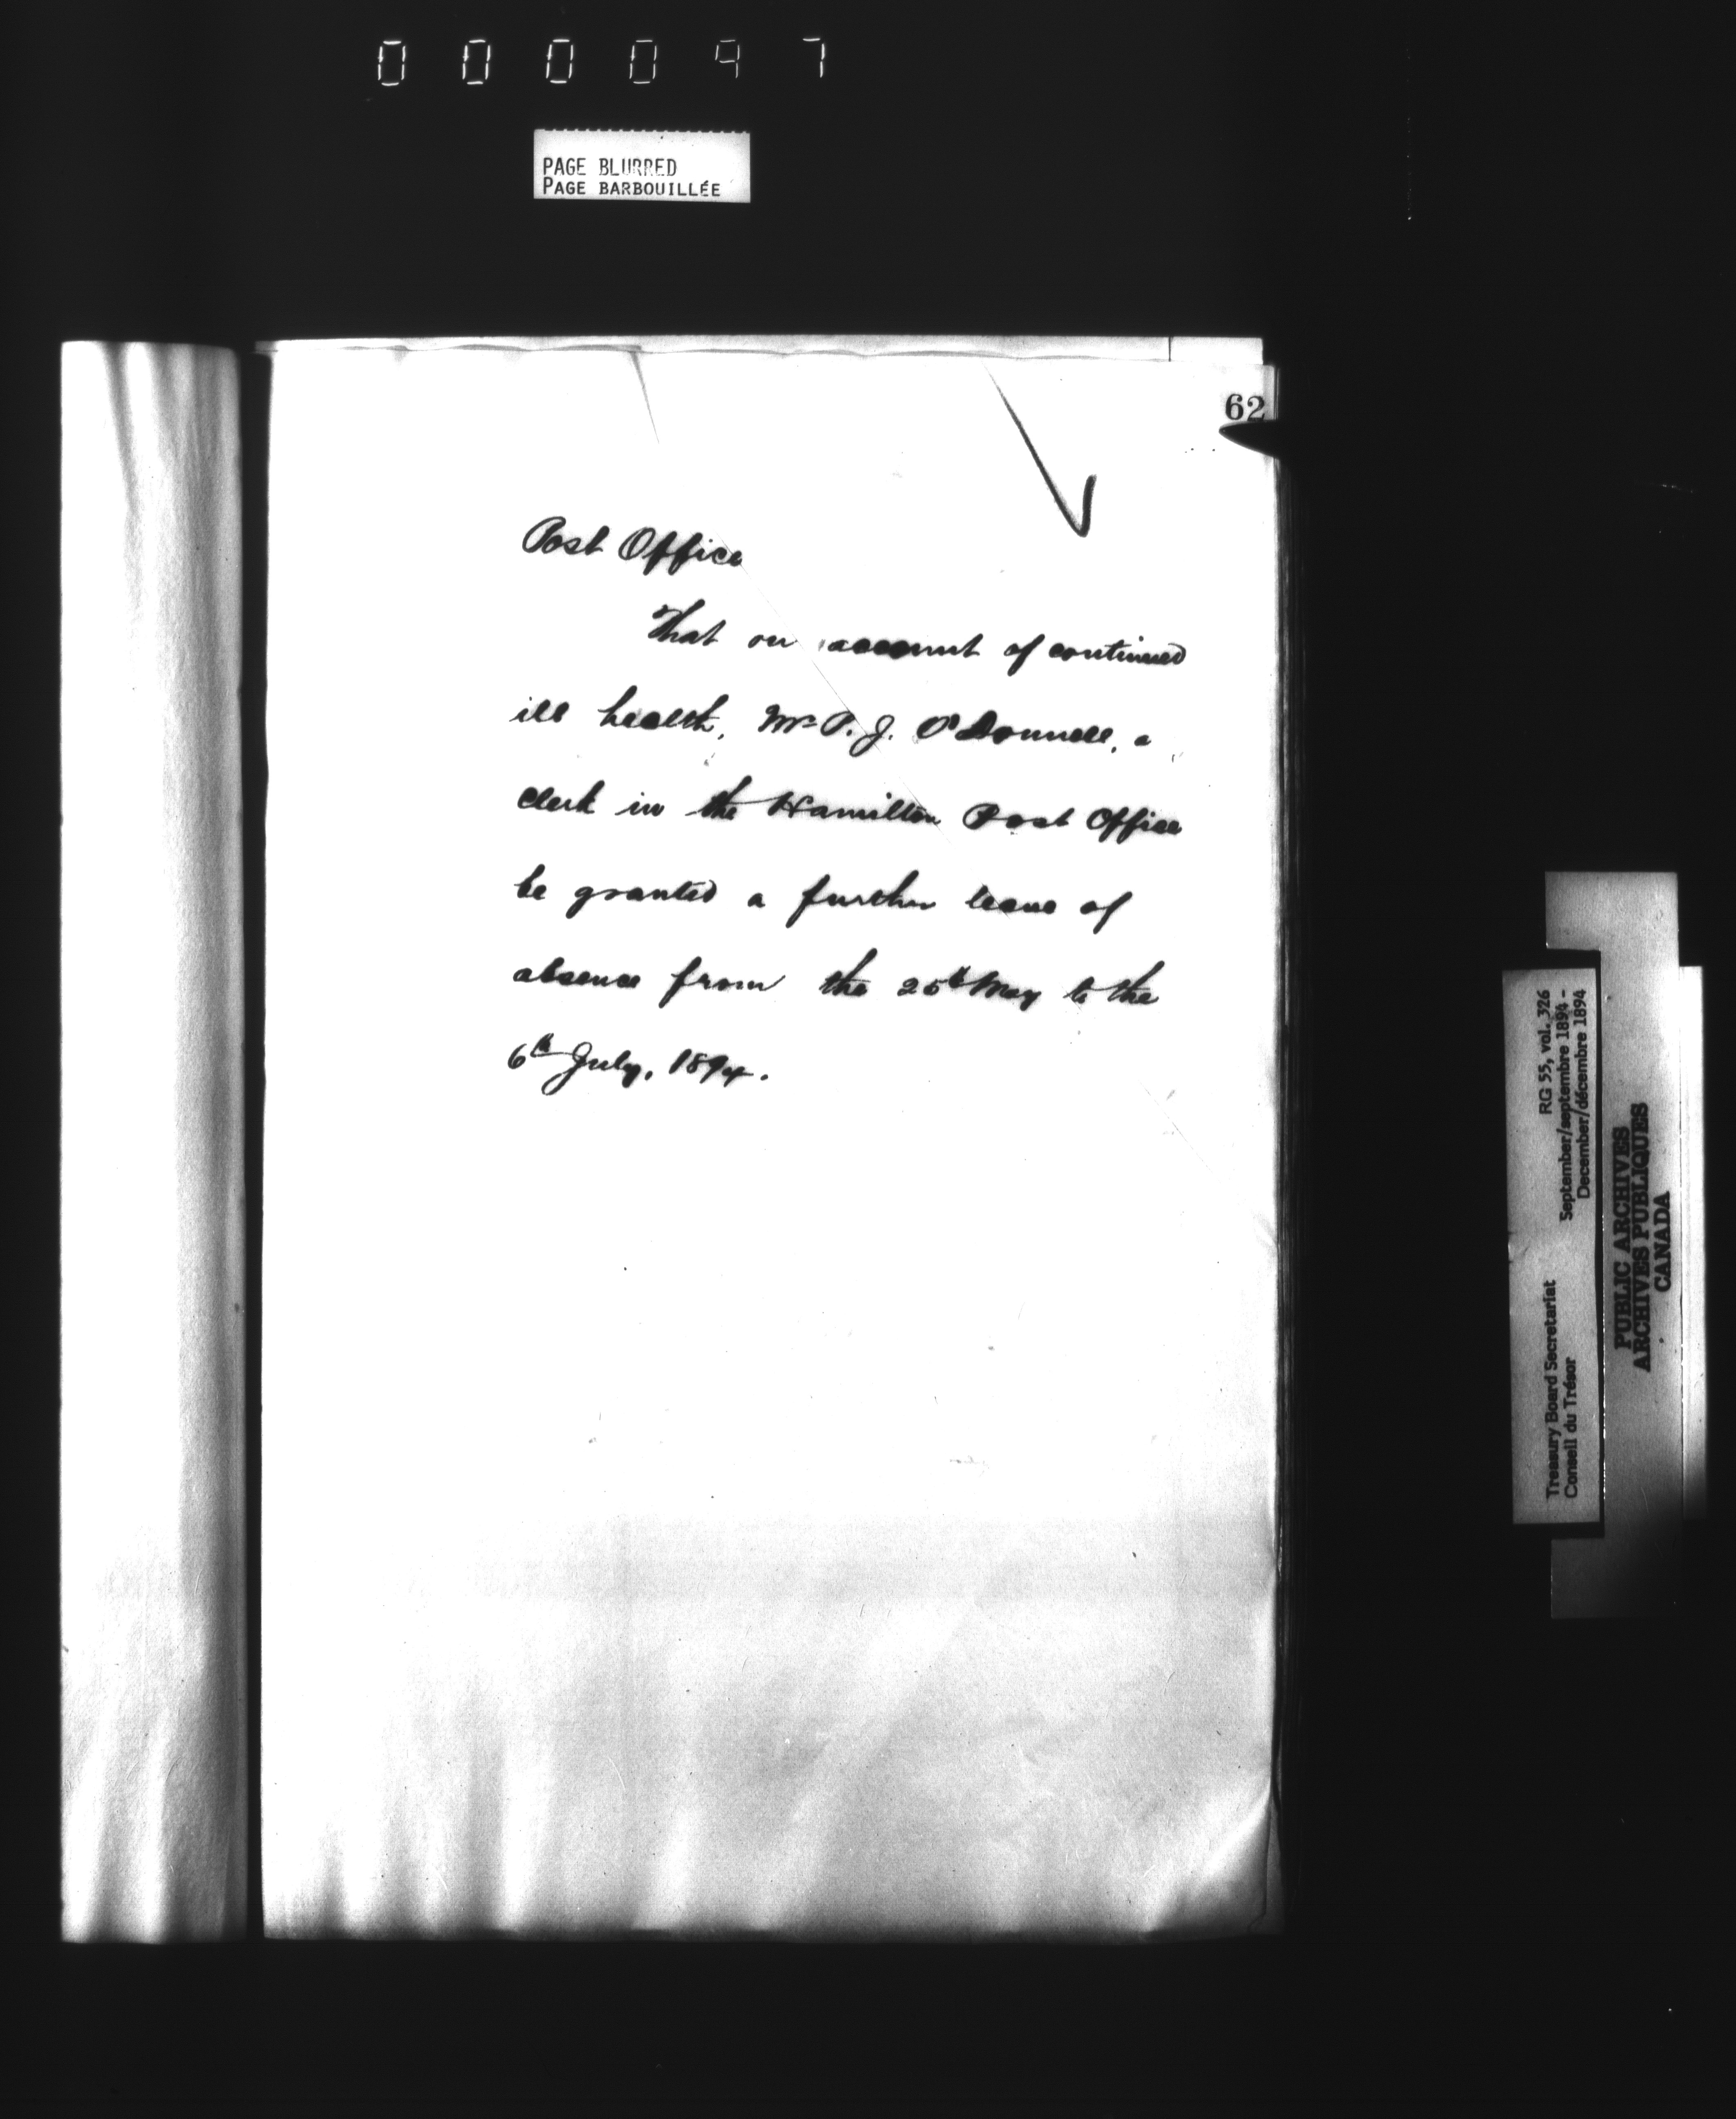 000097
PAGE BLURRED
PAGE BARBOUILLÉE
62
Post Office
That on account of continued
ill health, Mr P. J. O'Donnell, a
clerk in the Hamilton Post Office
be granted a further leave of
absence from the 25th May to the
6th July, 1894.
Treasury Board Secretariat RG 55, vol. 326
Conseil du Trésor September/septembre 1894 -
December/décembre 1894
PUBLIC ARCHIVES
ARCHIVES PUBLIQUES
CANADA